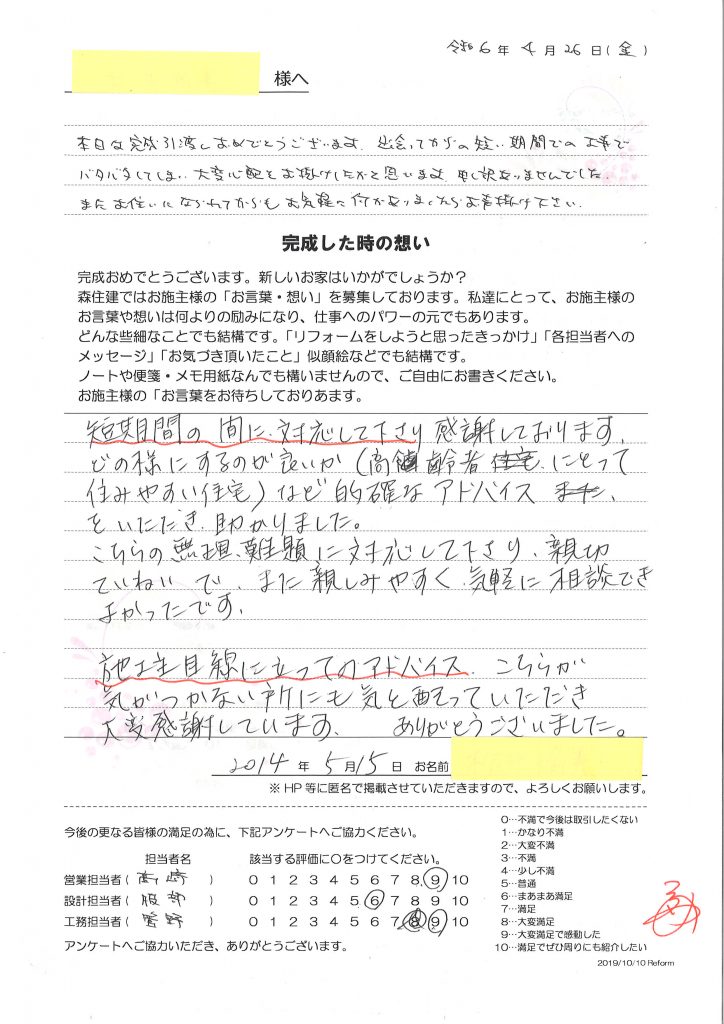 令和6年4月26日(金)
様へ
本日は完成引渡しおめでとうございます。出会ってからの短い期間での工事で
バタバタしてしまい大変心配をお掛けしたかと思います。申し訳ありませんでした。
またお住いになられてからもお気軽に何かありましたらお声掛け下さい。
完成した時の想い
完成おめでとうございます。新しいお家はいかがでしょうか?
森住建ではお施主様の「お言葉・想い」を募集しております。私達にとって、お施主様の
お言葉や想いは何よりの励みになり、仕事へのパワーの元でもあります。
どんな些細なことでも結構です。「リフォームをしようと思ったきっかけ」「各担当者への
メッセージ」「お気づき頂いたこと」似顔絵などでも結構です。
ノートや便箋・メモ用紙なんでも構いませんので、ご自由にお書きください。
お施主様の「お言葉をお待ちしておりあます。
短期間の間に対応して下さり感謝しております。
どの様にするのが良いか(高齢者にとって
住みやすい住宅)など的確なアドバイス
をいただき助かりました。
こちらの無理難題に対応して下さり、親切
ていねいで、また親しみやすく気軽に相談でき
よかったです。
施工主目線に立ってのアドバイス、こちらが
気がつかない所にも気を配っていただき
大変感謝しています。 ありがとうございました。
2014年5月15日 お名前
※HP等に匿名で掲載させていただきますので、よろしくお願いします。
今後の更なる皆様の満足の為に、下記アンケートへご協力ください。
担当者名 該当する評価に○をつけてください。
営業担当者(高崎) 0 1 2 3 4 5 6 7 8 9 10
設計担当者(服部) 0 1 2 3 4 5 6 7 8 9 10
工務担当者(菅野) 0 1 2 3 4 5 6 7 8 9 10
アンケートへご協力いただき、ありがとうございます。
0…不満で今後は取引したくない
1…かなり不満
2…大変不満
3…不満
4…少し不満
5…普通
6…まあまあ満足
7…満足
8…大変満足
9…大変満足で感動した
10…満足でぜひ周りにも紹介したい
2019/10/10 Reform